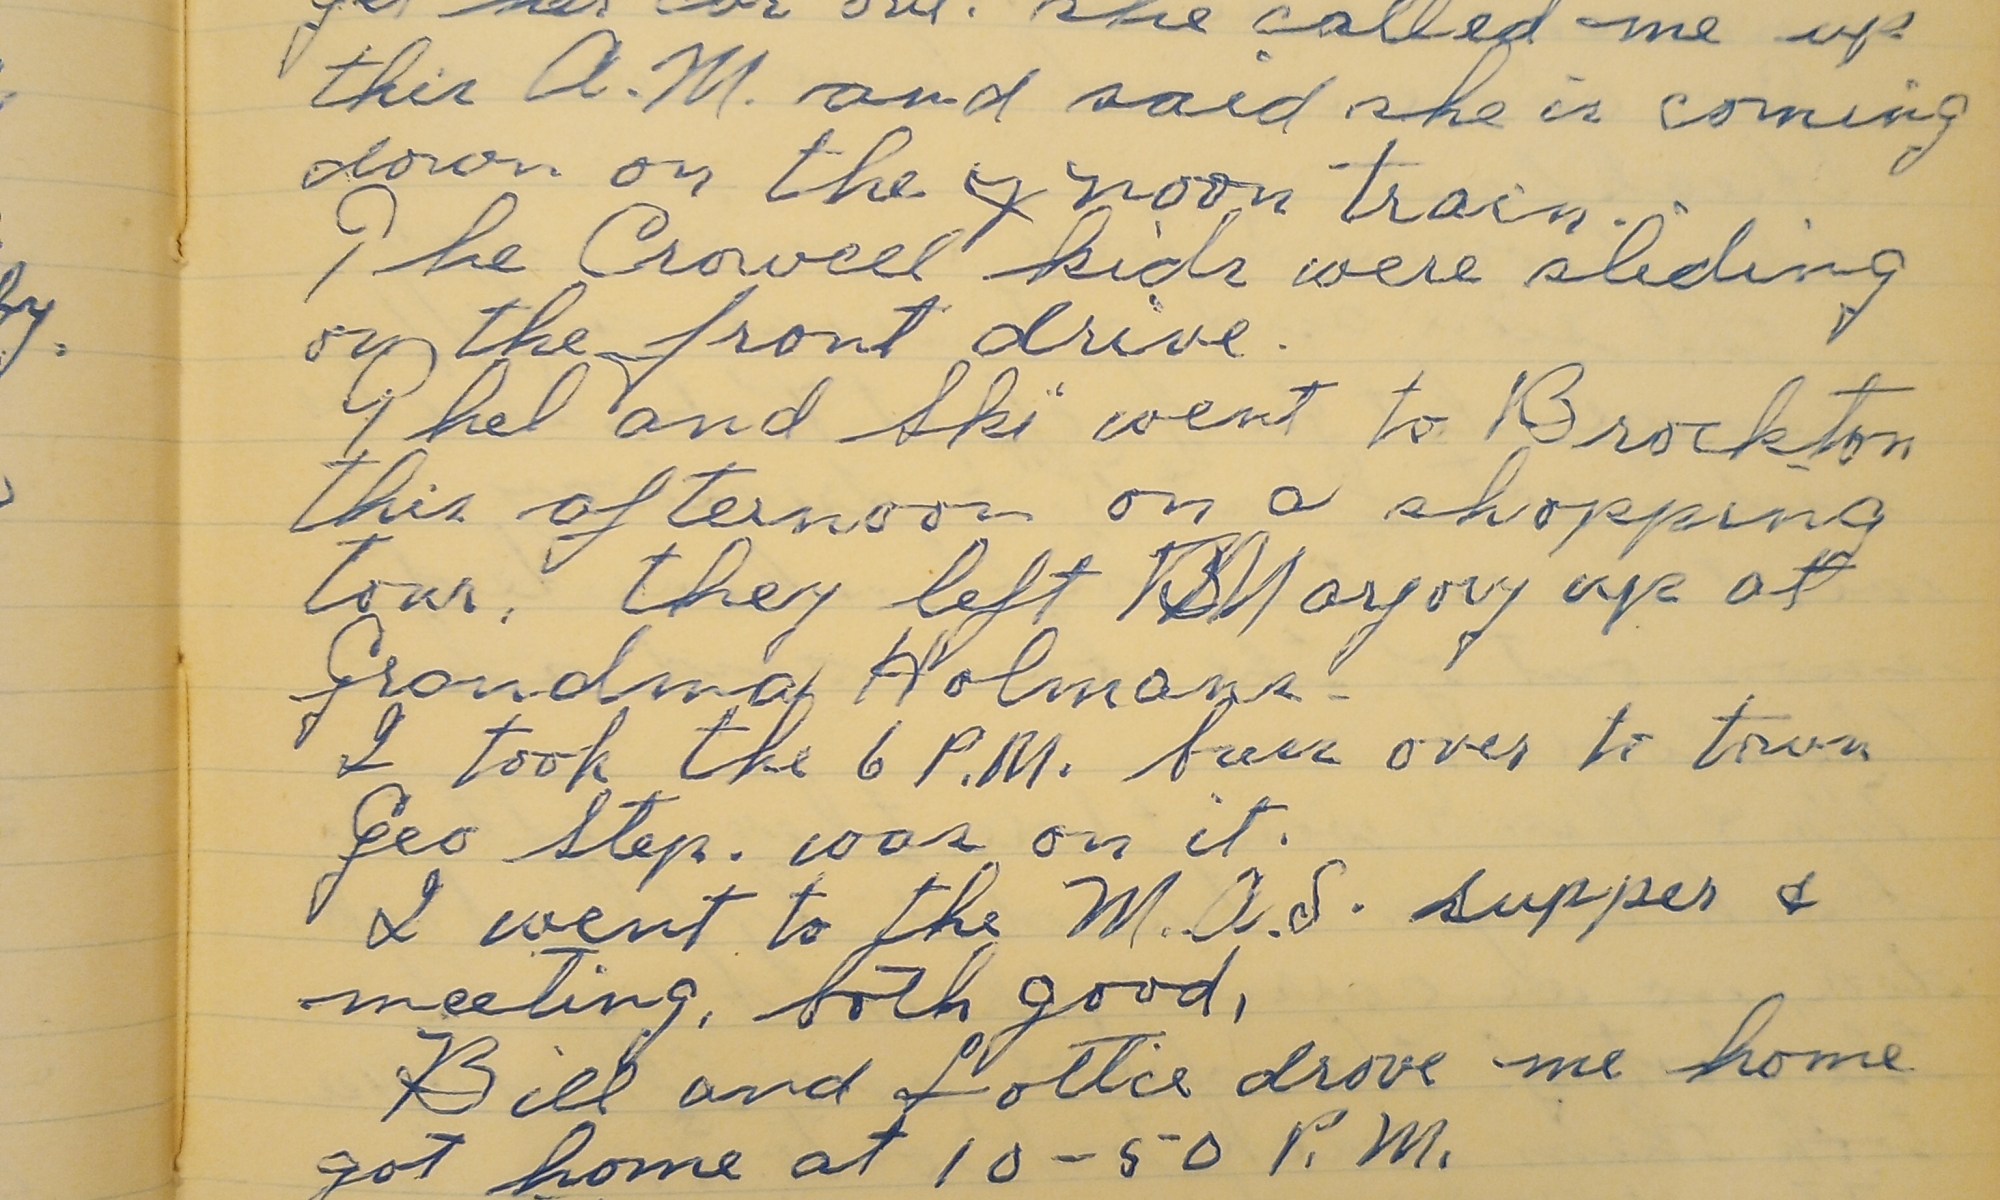 get her car out. she called me up
this A.M. and said she is coming
down on the noon train.
The Crowell kids were sliding
on the front drive.
Thel and Ski went to Brockton
this afternoon on a shopping
tour, they left Margory up at
Grandma Holmans.
I took the 6 P.M. bus over to town
Geo Step. was on it.
I went to the M.A.S. supper &
meeting, both good,
Bill and Lottie drove me home
got home at 10-50 P.M.